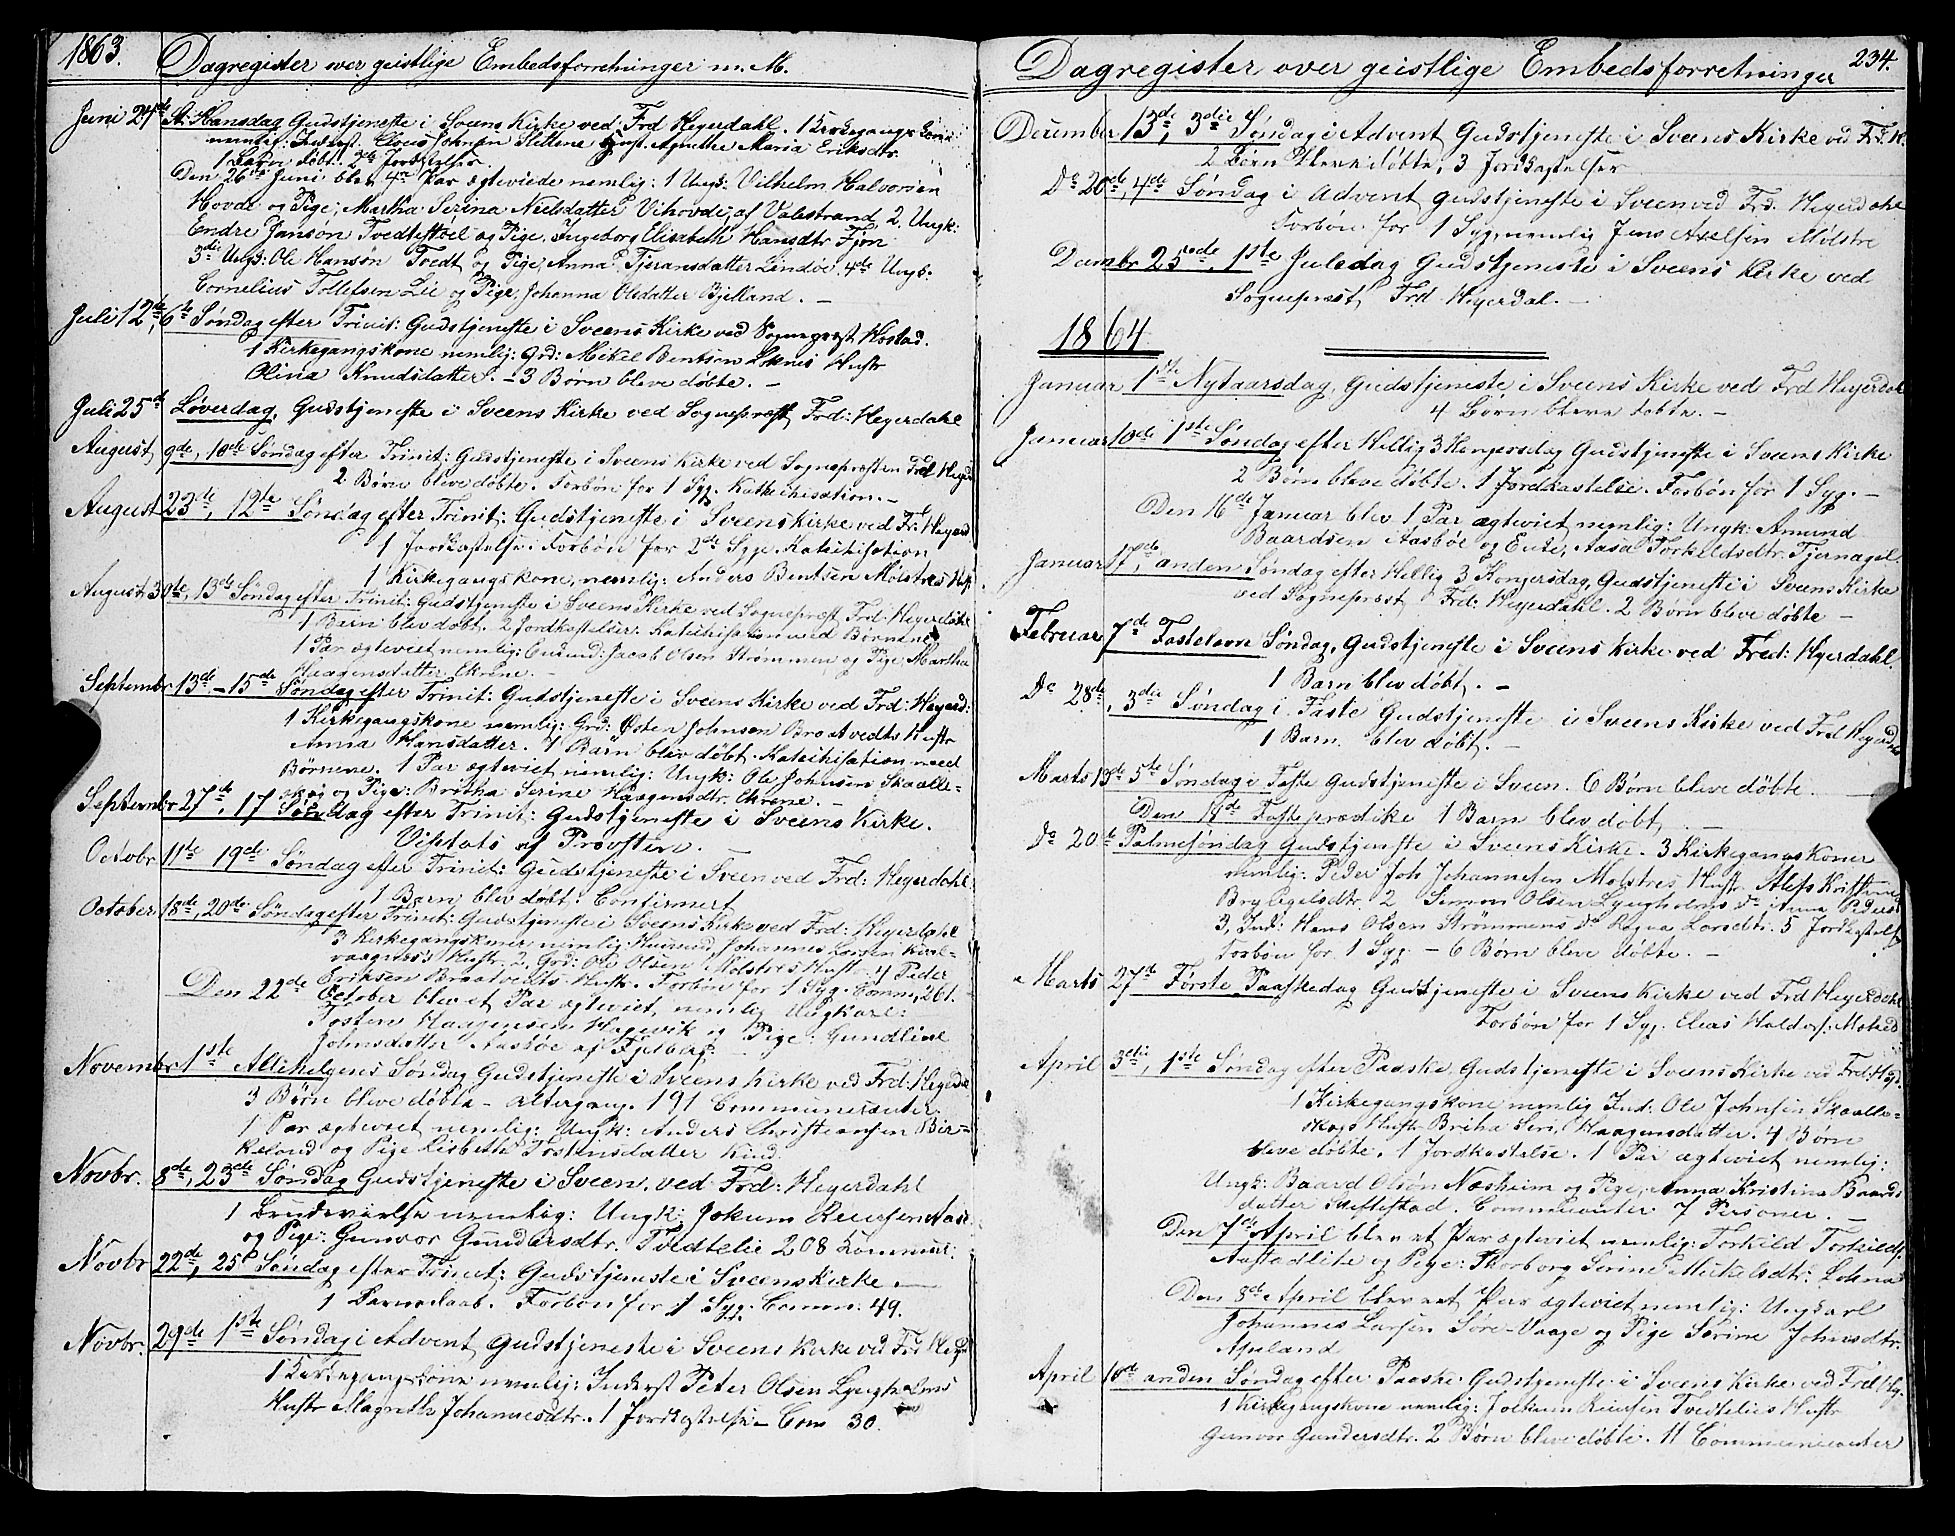 1863. Dagregister over geistlige Embedsforretninger m. M.
Juni 24de St: Hansdag Gudstjeneste i Sveens Kirke ved Frd Heyerdahl. 1 Kirkegangs Kone
nemlig: Inderst. Johnsen Hust. Agnethe Maria Eriksdtr.
1 Barn døbt. 2de Jordkastelser.
Den 26de Juni blev 4re Par ægteviede nemlig: 1 Ungk: Vilhelm Halvorsen
Hovde og Pige, Martha Serina Neelsdatter Vihovde, af Valestrand 2. Ungk:
Endre Janson Tvedtestøel og Pige, Ingeborg Elisabeth Hansdtr Fjon
3die Ungk: Ole Hanson Tvedt og Pige, Anna Tjeransdatter Lindøe. 4de Ungk.
Cornelius Tollefsen Lie og Pige, Johanna Olsdatter Bjelland. –
Juli 12te, 6te Søndag efter Trinit: Gudstjeneste i Sveens Kirke ved Sognepræst Hostad.
1 Kirkegangskone nemlig: Grd: Mikel Bentsen Loknes Hustr
Olina Knudsdatter. – 3 Børn bleve døbte. –
Juli 25de Løverdag, Gudstjeneste i Sveens Kirke ved Sognepræst Frd: Heyerdahl
August 9de, 10de Søndag efter Trinit: Gudstjeneste i Sveens Kirke ved Sognepræsten Frd Heyerd
2 Børn bleve døbte. Forbøn for 1 Syg. Katechisation. –
August 23di, 12te Søndag efter Trinit: Gudstjeneste i Sveens Kirke ved Fr. Heyerd
1 Jordkastelse. Forbøn for 2de Syge. Katechisation
1 Kirkegangskone, nemlig: Anders Bentsen Molstres Hust.
August 30te, 13de Søndag efter Trinit: Gudstjeneste i Sveens Kirke ved Sognepræst Frd: Heyerdahl
1 Barn blev døbt. 2 Jordkastelser. Katechisation med Børnene
1 Par ægteviet nemlig: Jacob Olsen Strømmen og Pige, Martha
Haagensdatter Ekrene. –
Septembr 13de – 15de Søndag efter Trinit: Gudstjeneste i Sveens Kirke ved Frd: Heyerd:
1 Kirkegangskone nemlig: Grd: Østen Johnsen Braatvedts Hustr
Anna Hansdatter. 1 Barn blev døbt. Katechisation med
Børnene. 1 Par ægteviet nemlig: Ungk: Ole Johnsen Skaalle-
skog og Pige: Britha Serine Haagensdtr. Ekrene. –
Septembr 27de, 17 Søndag efter Trinit: Gudstjeneste i Sveens Kirke.
Visitats af Provsten.
Octobr. 11te 19de Søndag efter Trinit: Gudstjeneste i Sveen ved Frd: Heyerdahl
1 Barn blev døbt. Confirmert
October 18de, 20de Søndag efter Trinit: Gudstjeneste i Sveens Kirke ved Frd: Heyerdahl
3 Kirkegangskoner nemlig: Huusmd Johannes Larsen
Hustr. 2. Grd: Ole Olsen Molstres Hustr 4 Peder
Eriksen Braatvedts Hustr. Forbøn for 1 Syg. Comm, 261.
Den 22de October blev et Par ægteviet, nemlig Ungkarl:
Tosten Haagensen Hagevik og Pige: Gundline
Johnsdatter Aasbøe af Fjelberg.
Novembr 1ste Allehelgens Søndag Gudstjeneste i Sveens Kirke ved Frd: Heyerd
3 Børn bleve døbte – altergang. 191 Communicanter
1 Par ægteviet nemlig: Ungk: Anders Christiansen Bir-
keland og Pige Lisbethe Tostensdatter Kind.
Novbr. 8de, 23de Søndag Gudstjeneste i Sveen, ved Frd: Heyerdahl
1 Brudevielse nemlig: Ungk: Jokum
og Pige: Gunvor Gundersdtr. Tvedtelie 208 Commun:
Novbr 22de, 25de Søndag efter Trinit: Gudstjeneste i Sveens Kirke.
1 Barnedaab. Forbøn for 1 Syg. Comm: 49.
Novbr. 29de 1ste Søndag i Advent Gudstjeneste i Sveens Kirke ved Frd Heyd
1 Kirkegangskone nemlig: Inderst Peter Olsen Lyngholms
Hustr Magrethe Johannesdtr. 1 Jordkastelse – Com 30.
Dagregister over geistlige Embedsforretninger 234.
December 13de, 3die Søndag i Advent Gudstjeneste i Sveens Kirke ved Frd. H.
2 Børn bleve døbte, 3 Jordkastelser
Do 20de, 4de Søndag i Advent Gudstjeneste i Sveen ved Frd. Heyerdahl
Forbøn for 1 Syg, nemlig Jens Axelsen Molstre
Decembr 25de, 1ste Juledag Gudstjeneste i Sveens Kirke ved
Sognepræst Frd Heyerdal. –
1864
Januar 1ste Nytaarsdag, Gudstjeneste i Sveens Kirke ved Frd Heyerdal
4 Børn bleve døbte. –
Januar 10de 1ste Søndag efter Hellig 3 Kongersdag Gudstjeneste i Sveens Kirke
2 Børn bleve døbte. 1 Jordkastelse. Forbøn for 1 Syg. –
Den 16de Januar blev 1 Par ægteviet nemlig: Ungk: Amund
Baardsen Aasbøe og Enke, Aasa Torkildsdtr. Tjernagel
Januar 17de, anden Søndag efter Hellig 3 Kongersdag, Gudstjeneste i Sveens Kirke
ved Sognepræst Frd: Heyerdahl. 2 Børn bleve døbte –
Februar 7de Fastelavn Søndag, Gudstjeneste i Sveens Kirke ved Fred: Heyerdahl.
1 Barn blev døbt. –
Do 28de, 3die Søndag i Faste Gudstjeneste i Sveens Kirke ved Frd Heyerdahl
1 Barn blev døbt. –
Marts 13de 5te Søndag i Faste Gudstjeneste i Sveen. 6 Børn bleve døbte.
Den 18de Fasteprædike 1 Barn blev døbt
Do 20de Palmesøndag Gudstjeneste i Sveens Kirke. 3 Kirkegangskoner
nemlig: Peder Joh Johannesen Molstres Hustr
2 Simon Olsen Lyngholms do Anna Peders
3, Ind: Hans Olsen Strømmens do Larsdtr. 5 Jordkastelser
Forbøn for 1 Syg – 6 Børn bleve døbte. –
Marts 27de Første Paaskedag Gudstjeneste i Sveens Kirke ved Frd Heyerdahl
Forbøn for 1 Syg. Elias
April 3die, 1ste Søndag efter Paaske Gudstjeneste i Sveens Kirke ved Frd: Heyd.
1 Kirkegangskone nemlig Ind: Ole Johnsen Skaalle-
skogs Hustr Britha Seri, Haagensdatter. 4 Børn
bleve døbte. 1 Jordkastelse. 1 Par ægteviet nemlig:
Ungk: Baard Olson Næsheim og Pige, Anna Kristina Baards
datter Communicanter 7 Personer. –
Den 7de April blev et Par ægteviet nemlig: Torkild Torkilds.
og Pige: Thorborg Serine Mikelsdtr: Lokna
Den 8de April blev et Par ægteviet nemlig: Ungkarl
Johannes Larsen Søre-Vaage og Pige Serine Johnsdtr.
Apeland
April 10de anden Søndag efter Paaske Gudstjeneste i Sveens Kirke ved Frd Hey.
1 Kirkegangskone nemlig: Jokum Tvedtelies Hustr
Gunvor Gundersdtr. 2 Børn bleve døbte. 11 Communicanter